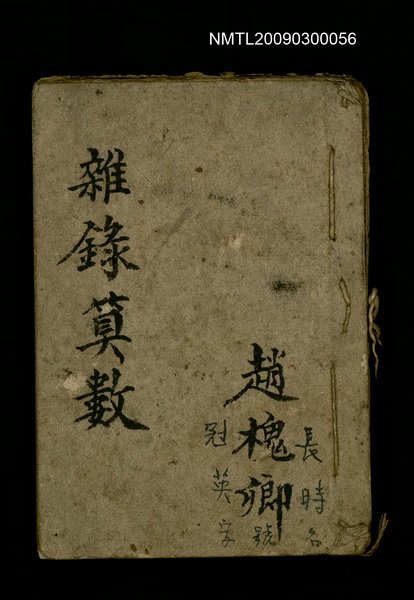 NMTL20090300056
雜錄算數
趙槐卿
長時名
號
冠英字